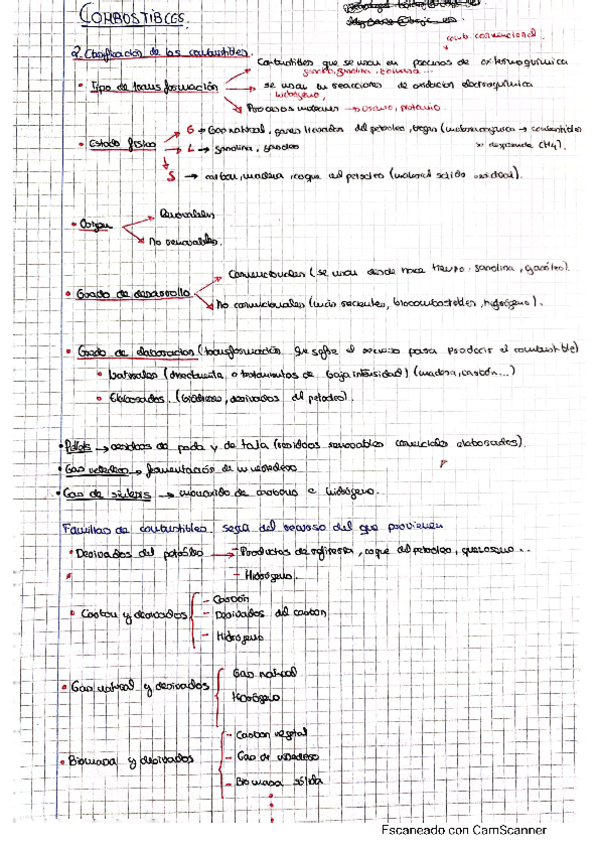 COMBUSTIBLES.
comb. convencional
2. Clasificación de los combustibles.
Combustibles que se usan en procesos de ox termoquímica
gasoleo, gasolina, biomasa ...
• Tipo de transformación
se usan en reacciones de oxidacion electroquímica
hidrógeno,
Procesos nucleares → uranio, plutonio.
• Estado físico
G → Gas natural, gases licuados del petroleo, biogas
L → gasolina, gasoleo
S → carbon, madera, coque del petroleo (material solido residual).
• Origen
Renovables
No renovables.
• Grado de desarrollo
Convencionales (se usan desde hace tiempo: gasolina, gasóleo).
No convencionales (más recientes, biocombustibles, hidrógeno).
• Grado de elaboracion (transformación que sufre el recurso para producir el combustible)
• Naturales (directamente o tratamientos de baja intensidad) (madera, carbón...)
• Elaborados. (biodiesel, derivados del petroleo).
• Pellets → residuos de poda y de tala (residuos renovables comerciales elaborados).
• Gas vertedero → fermentación de un vertedero
• Gas de síntesis → monoxido de carbono e hidrógeno.
Familias de combustibles según del recurso del que provienen
• Derivados del petróleo → - Productos de refineria, coque del petroleo, queroseno...
- Hidrógeno.
• Carbon y derivados
- Carbón
- Derivados del carbon
- Hidrógeno
• Gas natural y derivados
Gas natural
Hidrógeno
• Biomasa y derivados
- Carbon vegetal
- Gas de vertedero
- Biomasa sólida
Escaneado con CamScanner